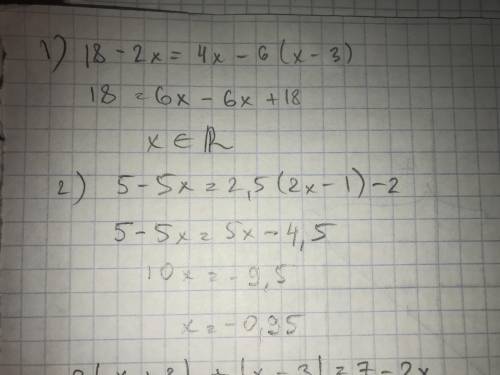 1) 18 - 2x = 4x - 6 (x - 3)
18 = 6x - 6x + 18
x ∈ ℝ
2) 5 - 5x = 2,5 (2x - 1) - 2
5 - 5x = 5x - 4,5
10x = -9,5
x = -0,95
(x + 2) + (x - 3) = 7 - 2x